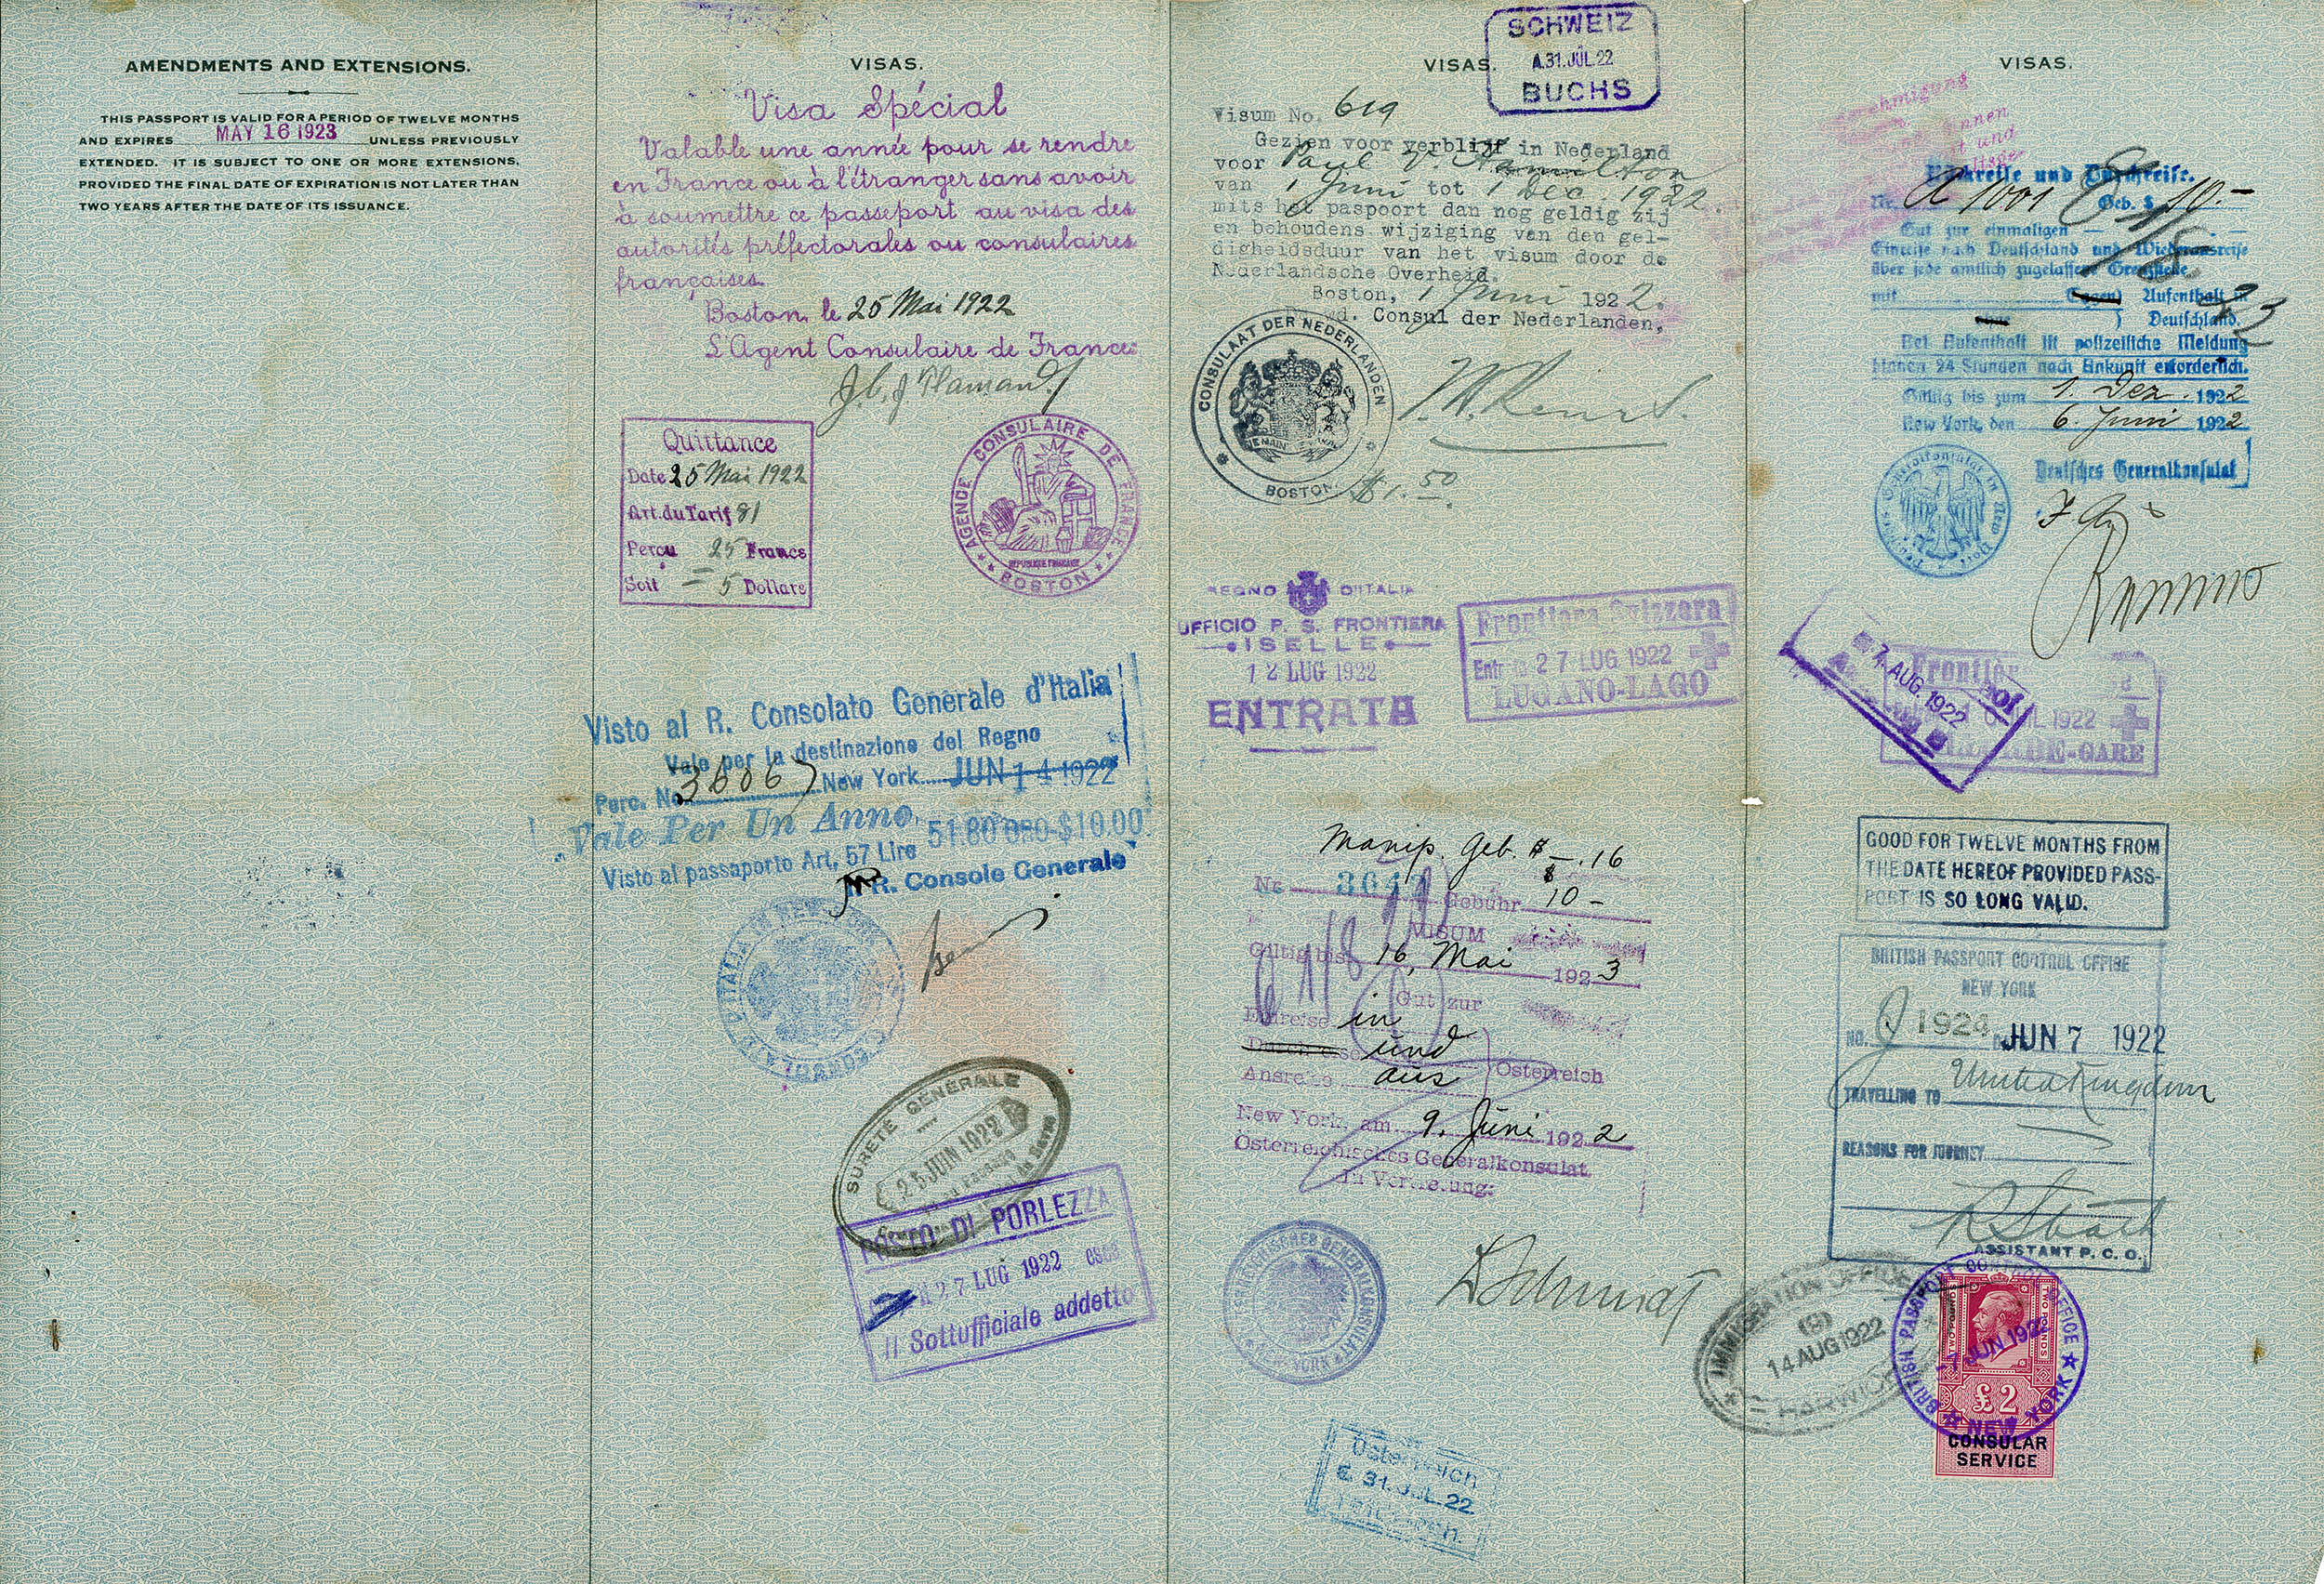 AMENDMENTS AND EXTENSIONS.
THIS PASSPORT IS VALID FOR A PERIOD OF TWELVE MONTHS
AND EXPIRES MAY 16 1923 UNLESS PREVIOUSLY
EXTENDED. IT IS SUBJECT TO ONE OR MORE EXTENSIONS,
PROVIDED THE FINAL DATE OF EXPIRATION IS NOT LATER THAN
TWO YEARS AFTER THE DATE OF ITS ISSUANCE.
VISAS.
Visa Spécial
Valable une année pour se rendre
en France ou à l'étranger sans avoir
à soumettre ce passeport au visa des
autorités préfectorales ou consulaires
françaises.
Boston, le 25 Mai 1922
L'Agent Consulaire de France:
Quittance
Date 25 Mai 1922
Art. du Tarif 81
Perçu 25 Francs
Soit = 5 Dollars
AGENCE CONSULAIRE DE FRANCE
REPUBLIQUE FRANÇAISE
BOSTON
Visto al R. Consolato Generale d'Italia
Vale per la destinazione del Regno
Perc. No. 36067 New York JUN 14 1922
Vale Per Un Anno. 51.80 oro-$10.00
Visto al passaporto Art, 57 Lire
R. Console Generale
SURETÉ GÉNÉRALE
25 JUIN 1922
POSTO DI PORLEZZA
27 LUG 1922
Il Sottufficiale addetto
VISAS.
SCHWEIZ
A.31.JUL.22
BUCHS
Visum No. 619
Gezien voor verblijf in Nederland
voor Paul V. Hamilton
van 1 Juni tot 1 Dec. 1922.
mits het paspoort dan nog geldig zij
en behoudens wijziging van den gel-
digheidsduur van het visum door de
Nederlandsche Overheid.
Boston, 1 Juni 1922.
wd. Consul der Nederlanden,
CONSULAAT DER NEDERLANDEN
BOSTON.
$1.50
REGNO D'ITALIA
UFFICIO P. S. FRONTIERA
ISELLE
12 LUG 1922
ENTRATA
Frontiera Svizzera
Entrata 27 LUG 1922
LUGANO-LAGO
Manip. Geb. $ -.16
Nr. Gebühr $ 10-
VISUM
Giltig bis 16. Mai 1923
Gut zur
Einreise in
Durchreise und
Ausreise aus Österreich
New York, am 9. Juni 1922
Österreichisches Generalkonsulat
In Vertretung:
ÖSTERREICHISCHES GENERALKONSULAT
NEW YORK
Österreich
31.JUL.22
VISAS.
Rückreise und Durchreise.
Nr. A 1001 Geb. $ 10.-
Gut zur einmaligen
Einreise nach Deutschland und Wiederausreise
über jede amtlich zugelassene Grenzstelle
mit (Tagen) Aufenthalt in
) Deutschland.
Bei Aufenthalt ist polizeiliche Meldung
binnen 24 Stunden nach Ankunft erforderlich.
Gültig bis zum 1. Dez. 1922
New York, den 6. Juni 1922
Deutsches Generalkonsulat
7. AUG. 1922
1922
GARE
GOOD FOR TWELVE MONTHS FROM
THE DATE HEREOF PROVIDED PASS-
PORT IS SO LONG VALID.
BRITISH PASSPORT CONTROL OFFICE
NEW YORK
NO. 1924 JUN 7 1922
TRAVELLING TO United Kingdom
REASONS FOR JOURNEY
ASSISTANT P. C. O.
IMMIGRATION OFFICER
(9)
14 AUG 1922
HARWICH
BRITISH PASSPORT CONTROL OFFICE
-7 JUN 1922
NEW YORK
TWO POUNDS
£2
CONSULAR
SERVICE